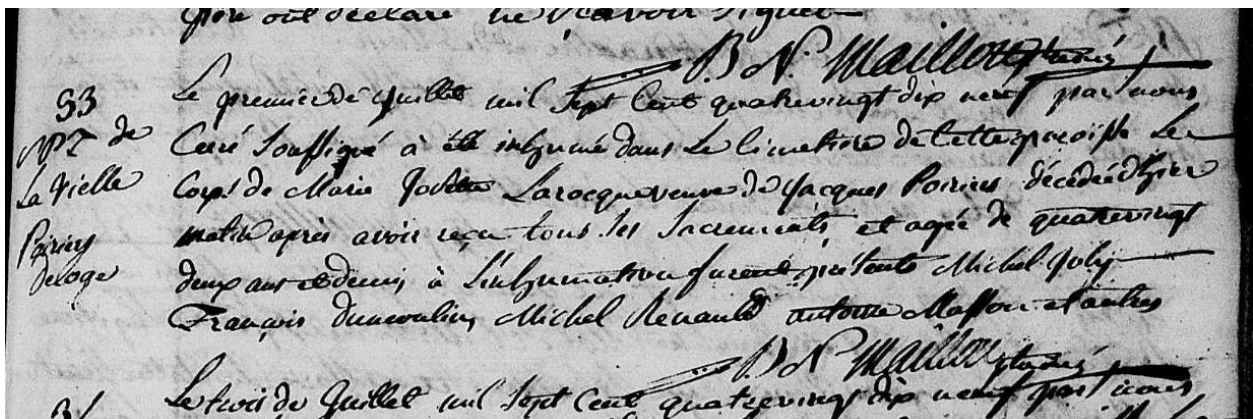 qui ont déclaré ne savoir signer
B. N. Mailloux ptre curé
S3
Le premier de juillet mil sept cent quatrevingt dix neuf par nous
de
Curé soussigné à été inhumé dans le cimetiere de cette paroisse le
La Vielle
corps de Marie Larocque veuve de Jacques Poirier décédée d'hier
Poirier
matin après avoir reçu tous les sacrements et agée de quatrevingt
deloge
deux ans et demis à l'inhumation furent présents Michel Joly
François Dumoulin, Michel Renauld antoine Masson et autres
B. N. Mailloux ptre curé
Le trois de Juillet mil sept cent quatrevingt dix neuf par nous